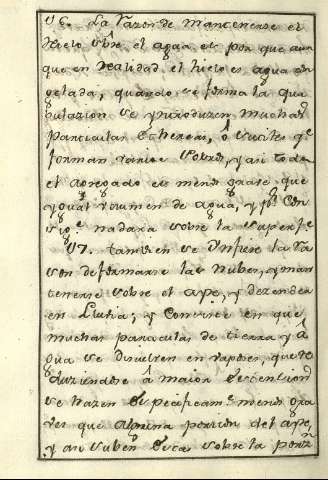 96. La razon de mantenerse el
hielo sobre el agua es por que aun
que en realidad el hielo es agua con
gelada, quando se forma la qua
gulazion se yntroduzen muchas
particulas Ethereas, ô sutiles qᵉ
forman varios poros, y asi todo
el agregado es menos grave que
ygual volumen de agua, y pʳ con
sigᵗᵉ nadara sobre la superfᵉ
97. tambien se ynfiere la ra
zon de formarse las nubes, y man
tenerse sobre el ayre, y dezender
en lluvia; y consiste en que
muchas particulas de tierra y â
gua se disuelven en vapores, que re
duziendose â maior extencion
se hazen especificamᵗᵉ menos gra
ves que alguna porcion del ayre,
y asi suben estas sobre la porzⁿ